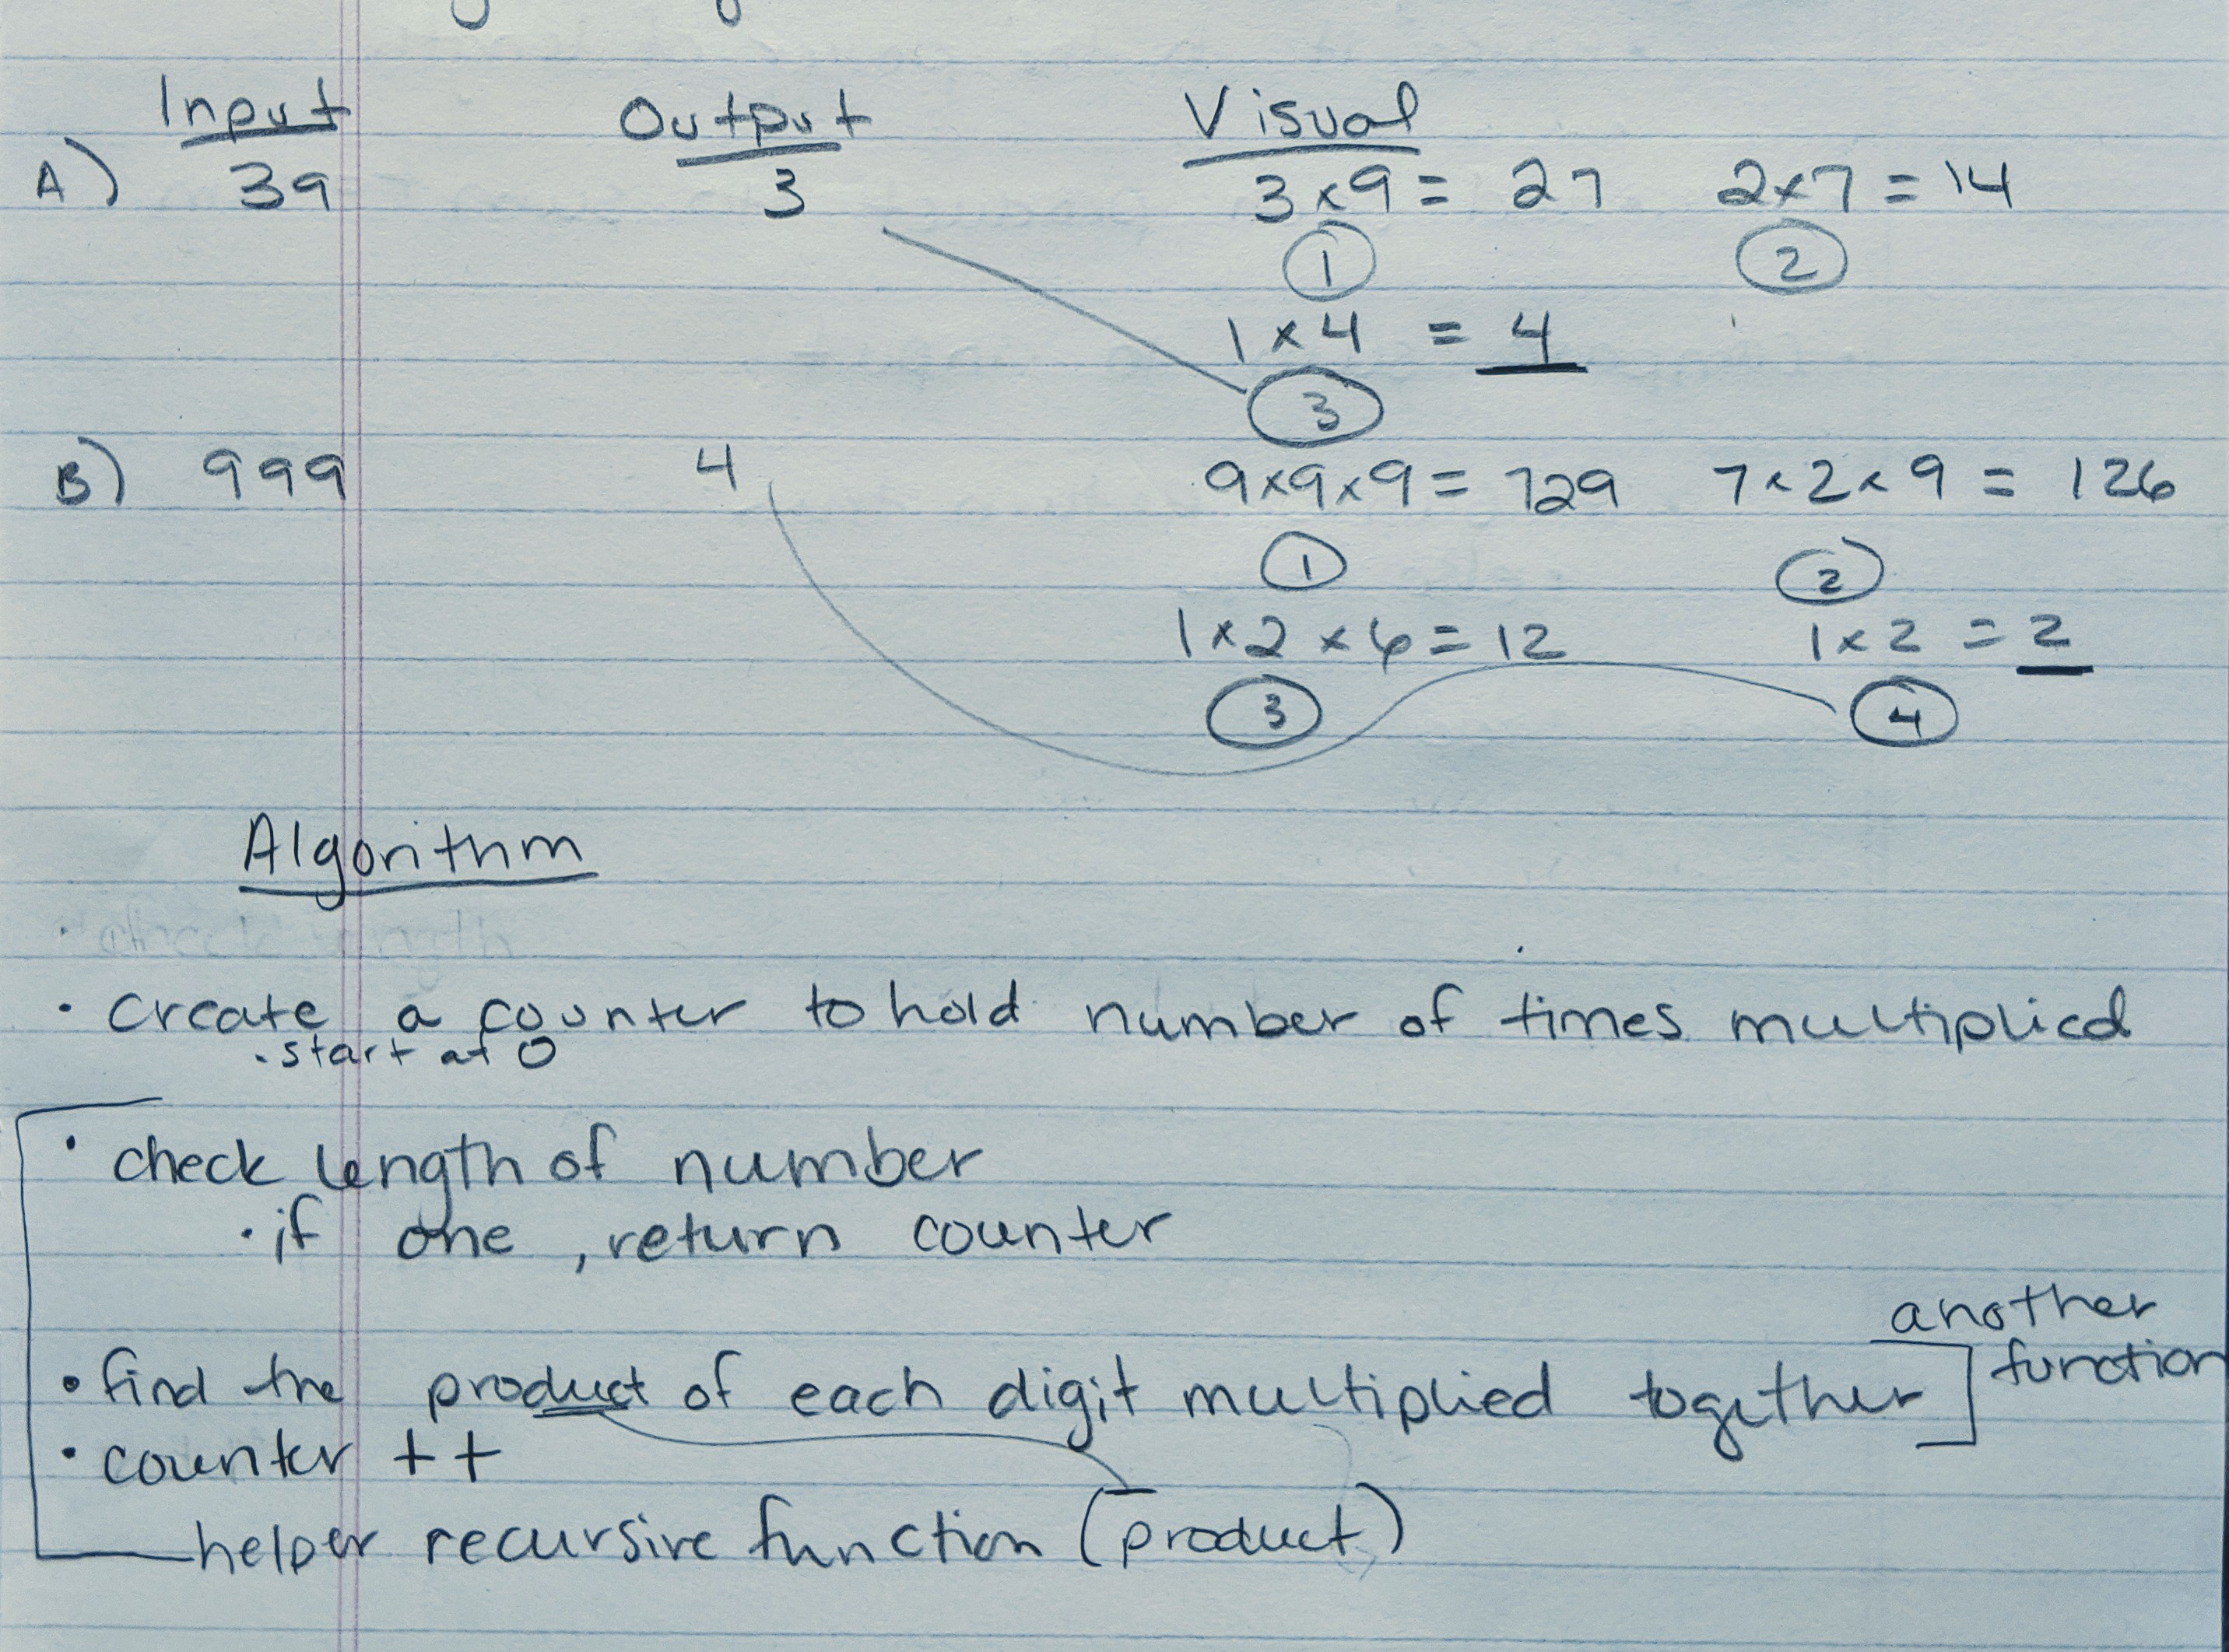 Input Output Visual
A) 39 3 3 x 9 = 27 2x7 = 14
① ②
1 x 4 = 4
③
B) 999 4 9x9x9 = 729 7x2x9 = 126
① ②
1x2x6 = 12 1x2 = 2
③ ④
Algorithm
· check length
· create a counter to hold number of times multiplied
· start at 0
· check length of number
· if one, return counter
another
function
• find the product of each digit multiplied together
• counter ++
helper recursive function (product)